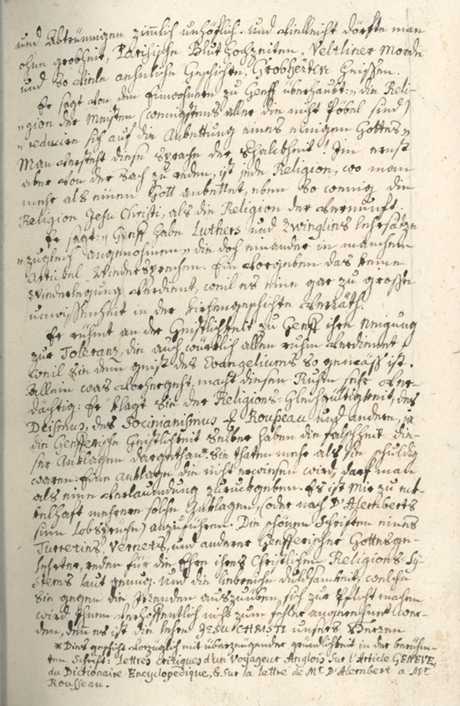 und Abtrünnigen zimlich unhöflich. und vielleicht dörfte man
ohne grobheit, Parisische Blut Hochzeiten, Veltliner Morde
und so viele ähnliche Geschichten, Grobheiten heissen.
Er sagt von den Einwohnern zu Genff überhaupt: „die Reli-
„gion der meisten wenigstens aller die nicht Pöbel sind
„reducire sich auf die Anbettung eines einigen Gottes„
Man versteht diese Sprache der Schalkheit! Im ernst
aber von der Sach zu reden, ist jede Religion, wo man
mehr als einen Gott anbettet, eben so wenig die
Religion Jesu Christi, als die Religion der Vernunft.
Er sagt: „Genff habe Luthers und Zwinglins Lehrsätze
„zugleich angenohmen„ die doch einander in manchem
Artikel wiedersprechen. Ein Vorgeben das keine
Wiederlegung verdient, weil es eine gar zu große
unwissenheit in der kirchengeschichte verräth.
Er rühmt an der Geistlichkeit zu Genff ihre Neigung
zur Toleranz, die auch würklich allen ruhm verdienet
weil sie dem geist des Evangeliums so gemäss ist.
Allein was vorhergeht, macht diesen Ruhm sehr ver-
dächtig: Er klagt sie der Religions-Gleichgültigkeit, des
Deismus, des Socinianismus &. Rousseau und andere, ja
die Genfferische Geistlichkeit selber haben die falschheit die-
ser Anklagen dargethan. Sie thaten mehr als sie schuldig
waren. Eine Anklage die nicht erwiesen wird, darf man
als eine verläumdung zurükgeben. Es ist mir zu ek-
kelhaft mehrere solche Anklagen, (oder nach D'Alemberts
sinn Lobsprüche) anzuführen. Die schönen Schriften eines
Turretins, Vernets, und anderer Genfferischer Gottesge-
lehrter, reden für die Ehre ihres Christlichen Religions-Sy-
stems laut genug. Und die liebreiche duldsamkeit, welche
Sie gegen die Irrenden auszuüben, sich zur Pflicht machen
wird Ihnen verhoffentlich nicht zum fehler angerechnet wer-
den, denn es ist die Lehre JESU CHRISTI unsers Herren
* Dies geschieht vorzüglich mit überzeugender gründlichkeit in der berühm-
ten Schrift: Lettres critiques d'un Voyageur Anglois sur l'Article GENEVE,
du Dictionaire Encyclopedique, & sur la lettre de Mr. D'Alembert a Mr.
Rousseau.